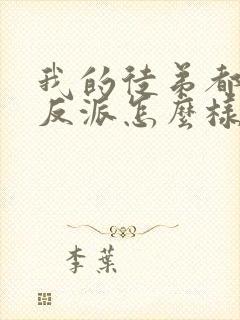 我的徒弟都
反派怎麼樣
李葉